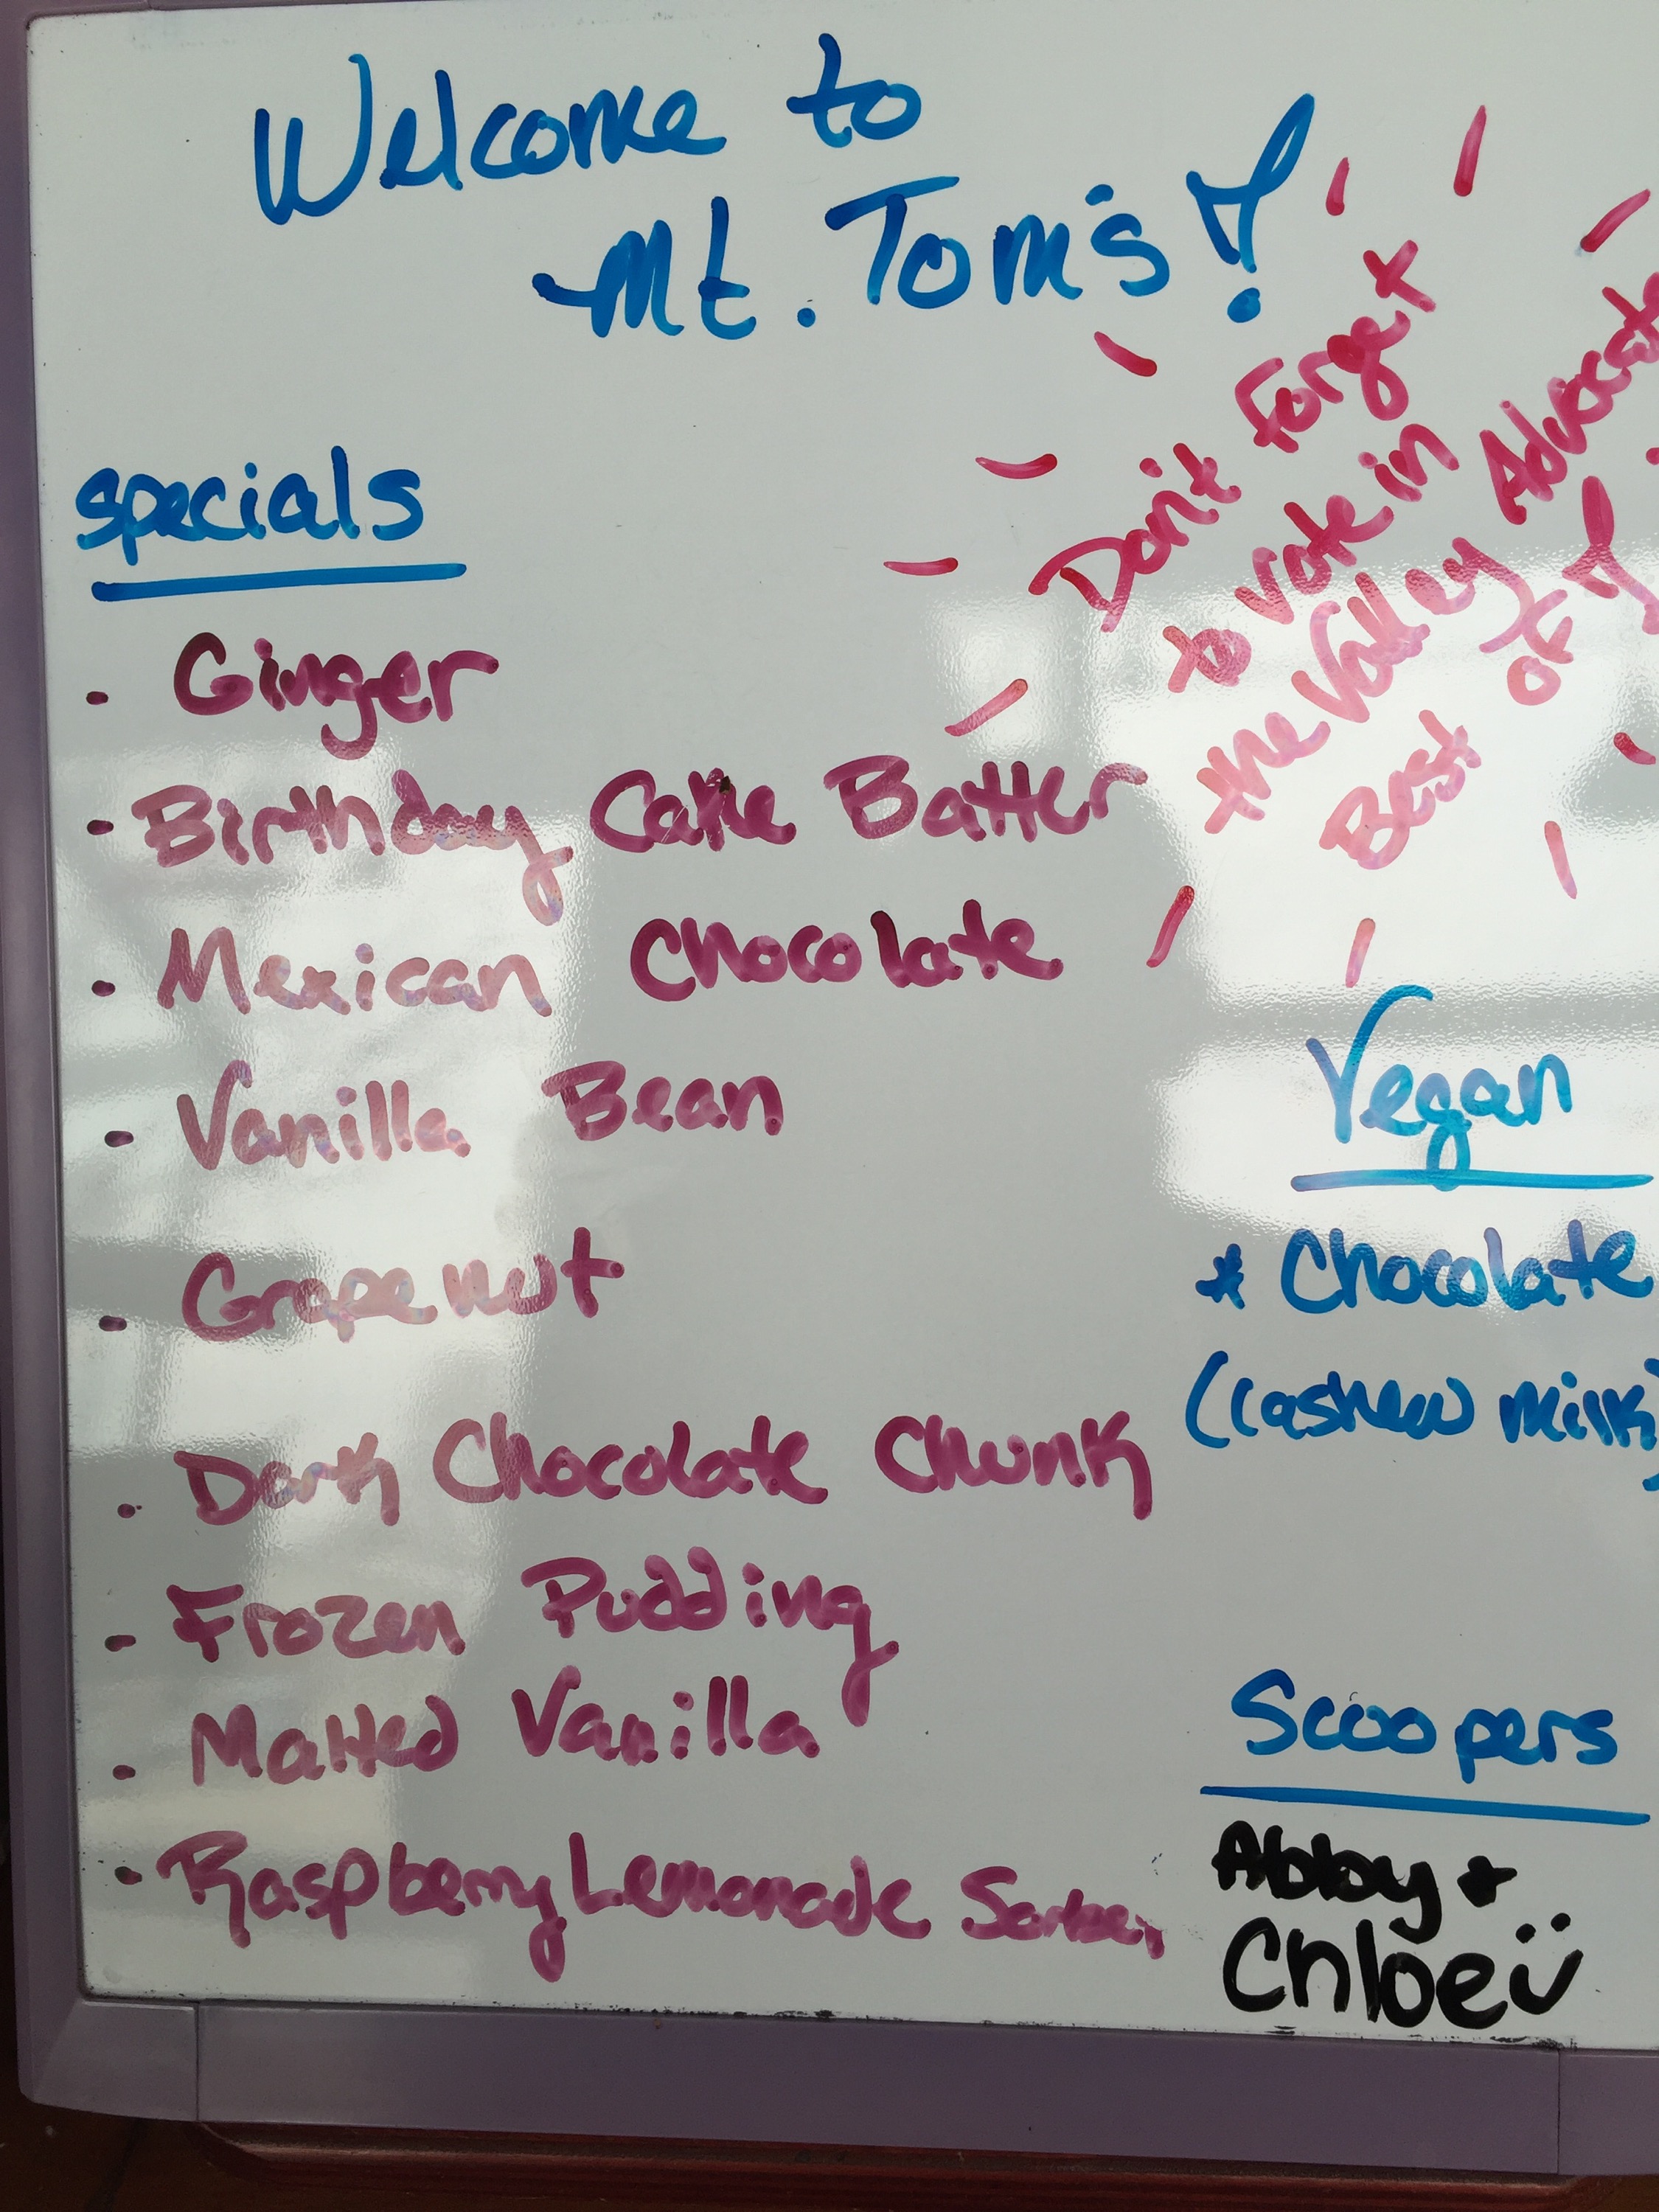 Welcome to
Mt. Tom's!
Don't Forget
to vote in
the Valley Advocate
Best of!
specials
• Ginger
• Birthday Cake Batter
• Mexican Chocolate
• Vanilla Bean
• Grapenut
• Dark Chocolate Chunk
• Frozen Pudding
• Malted Vanilla
• Raspberry Lemonade Sorbet
Vegan
* Chocolate
(cashew milk)
Scoopers
Abby +
Chloe ü